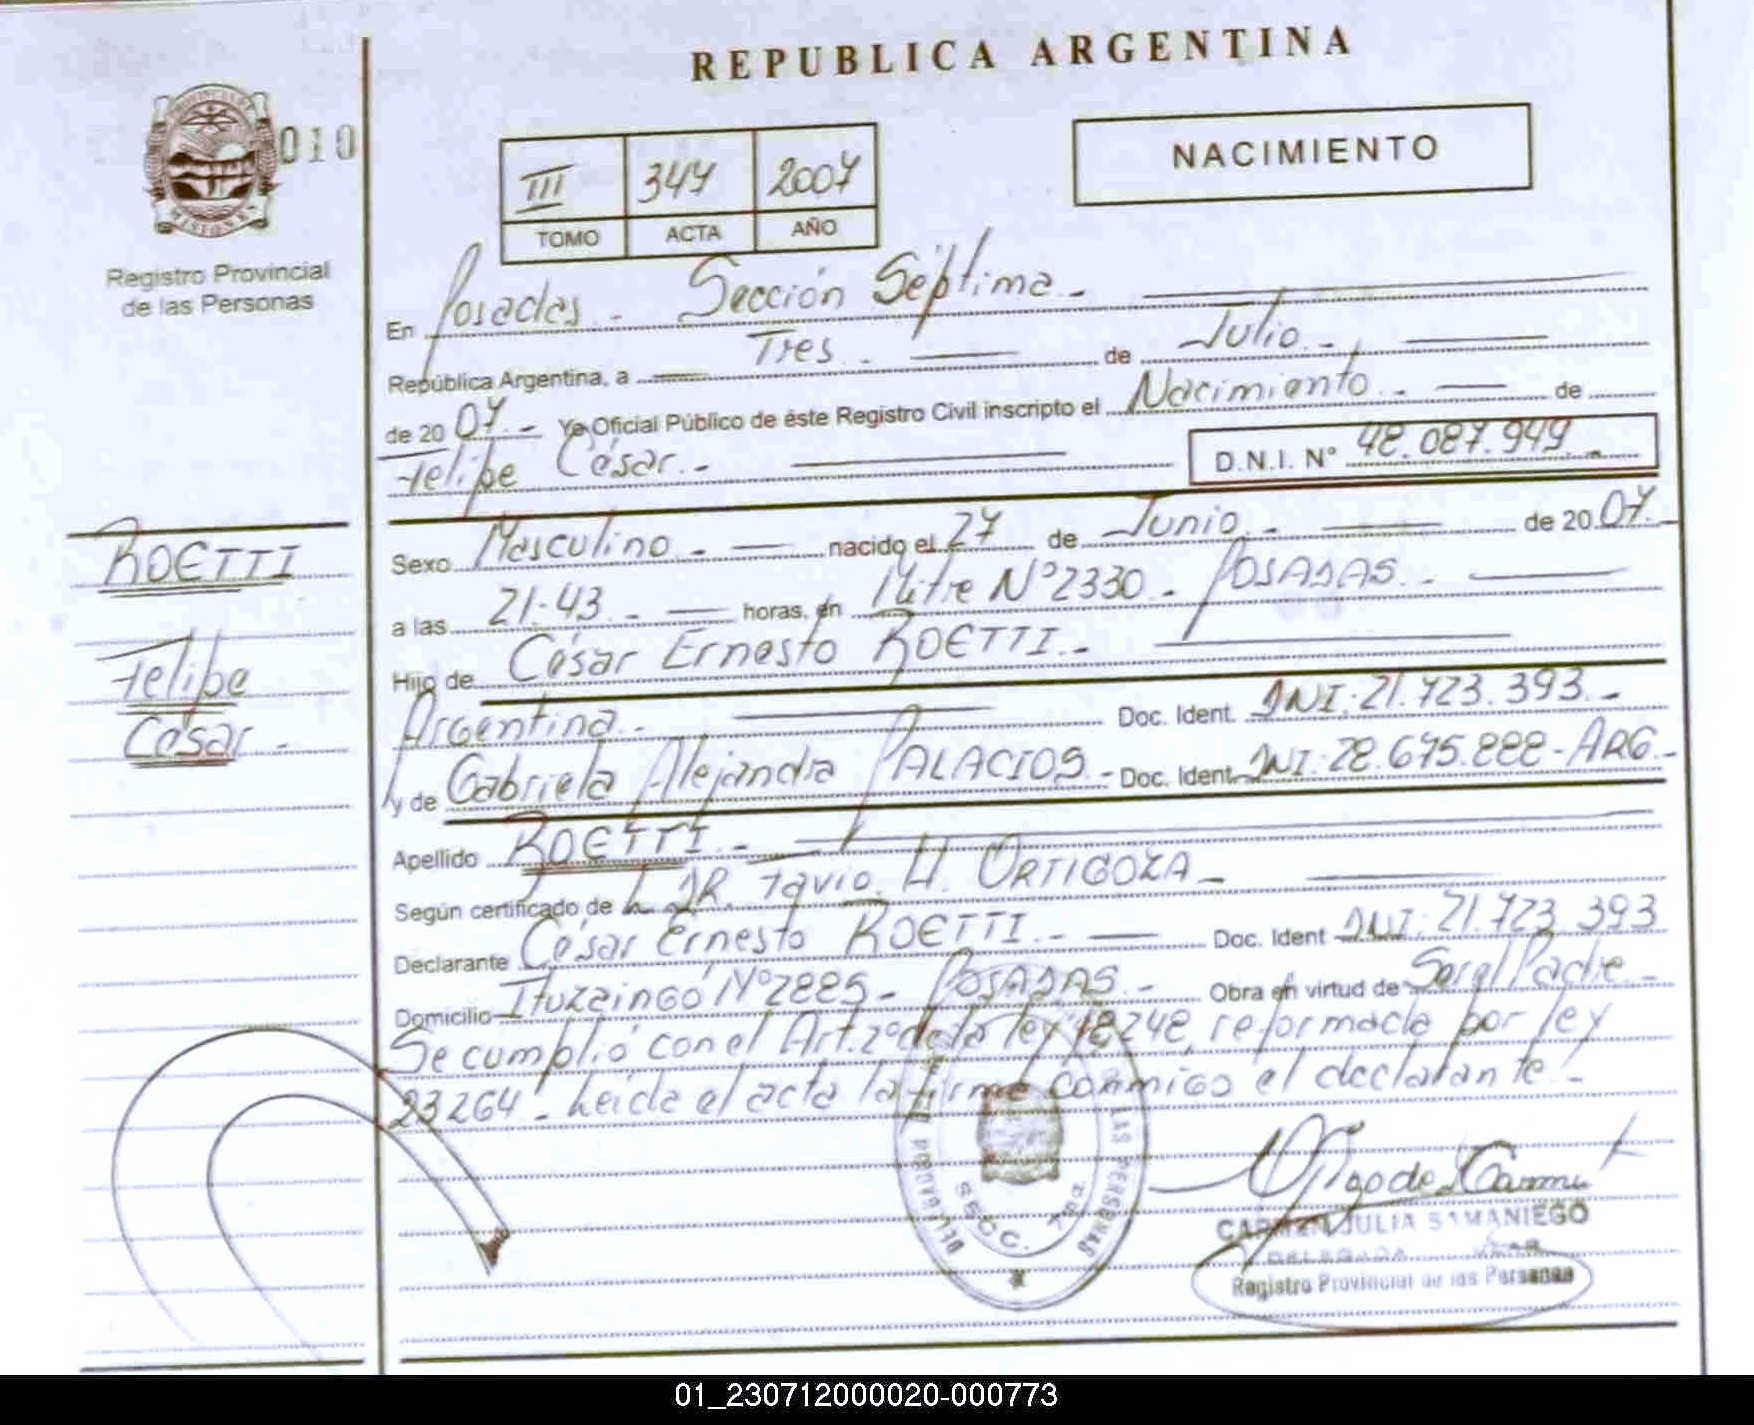 REPUBLICA ARGENTINA
010
NACIMIENTO
III 347 2007
TOMO ACTA AÑO
Registro Provincial
de las Personas
En Posadas - Sección Séptima -
República Argentina, a Tres - de Julio -
de 20 07 - Yo Oficial Público de éste Registro Civil inscripto el Nacimiento - de
Felipe César - D.N.I. Nº 48.087.949 -
Sexo Masculino - nacido el 27 de Junio - de 20 07 -
ROETTI
Felipe
César -
a las 21:43 - horas, en Mitre Nº 2330 - POSADAS -
Hijo de César Ernesto ROETTI -
Argentina - Doc. Ident. DNI: 21.723.393 -
y de Gabriela Alejandra PALACIOS - Doc. Ident. DNI: 28.675.888 - ARG -
Apellido ROETTI -
Según certificado de DR. H. ORTIGOZA -
Declarante César Ernesto ROETTI - Doc. Ident DNI: 21.723.393
Domicilio Ituzaingó Nº 2885 - POSADAS - Obra en virtud de Ser el Padre -
Se cumplió con el Art. 2º de la ley 18248, reformada por ley
23264 - Leída el acta la firma conmigo el declarante -
LAS PERSONAS
SECC. 7ma
CARMEN JULIA SAMANIEGO
DELEGADA
Registro Provincial de las Personas
01_230712000020-000773